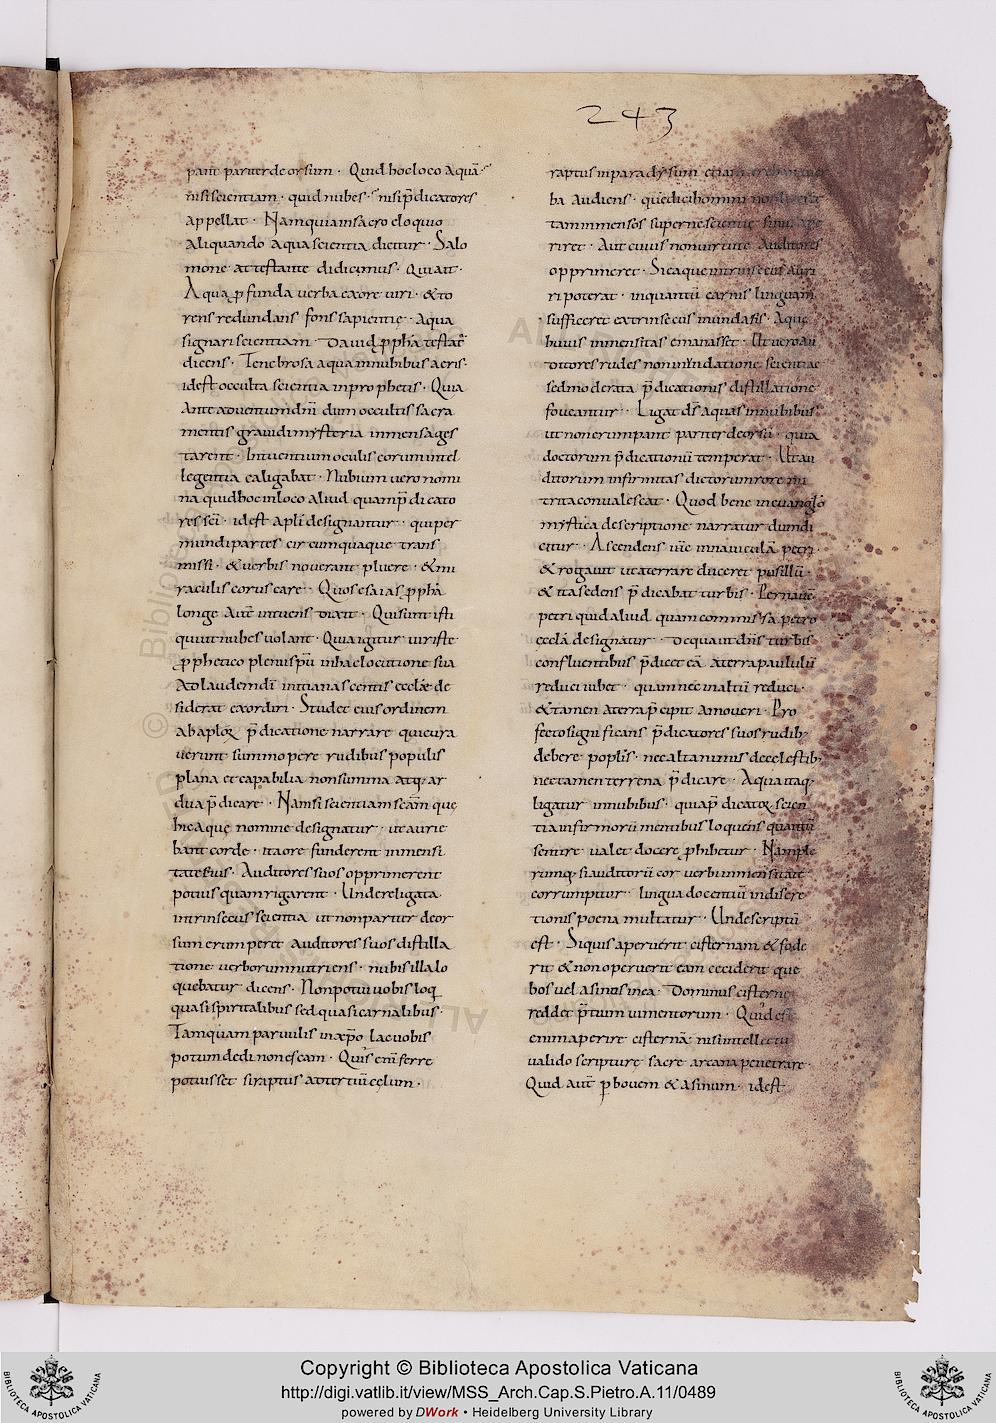 243
pant pariter deorsum · Quid hoc loco aquā
nisi scientiam · quid nubes · nisi p̄dicatores
appellat · Nam quia in sacro eloquio
aliquando aqua scientia dicitur · Salo
mone attestante didicimus · Qui ait ·
Aqua ꝓfunda uerba ex ore uiri · & to
rens redundans fons sapientię · Aqua
signari scientiam dauid ꝓpha testat̄
dicens · Tenebrosa aqua in nubibus aeris ·
id est occulta scientia in prophetis · Quia
ante aduentum dn̄i dum occultis sacra
mentis grauidi mysteria inmensa ges
tarent · Intuentium oculis eorum intel
legentia caligabat · Nubium uero nomi
na quid hoc in loco aliud quam p̄dicato
res sc̄i · id est apl̄i designantur · qui per
mundi partes circumquaque trans
missi · & uerbis nouerant pluere · & mi
raculis coruscare · Quos esaias ꝓpha
longe aut̄ intuens dixit · Qui sunt isti
qui ut nubes uolant · Quia igitur uir iste
ꝓphetico plenus sp̄u in hac locutione sua
ad laudem dī initia nascentis ecclę de
siderat exordiri · Studet eius ordinem
ab aploꝝ p̄dicatione narrare qui cura
uerunt summopere rudibus populis
plana et capabilia non summa atq; ar
dua p̄dicare · Nam si scientiam sc̄am quę
hic aquę nomine designatur · ut aurie
bant corde · ita ore funderent inmensi
tate eius · Auditores suos opprimerent
potius quam rigarent · Unde religata
intrinsecus scientia ut non pariter deor
sum erumperet auditores suos distilla
tione uerborum nutriens · nubis illa lo
quebatur dicens · Non potui uobis loq̄
quasi spiritalibus sed quasi carnalibus ·
Tamquam paruulis in xp̄o lac uobis
potum dedi non escam · Quis enī ferre
potuisset si raptus ad tertiū cęlum ·
raptus in paradysum etiam
ba audiens · quę dici homini
tam inmensos supernę scientię sinus ape
riret · Aut cuius non uirtute auditores
opprimeret · Si ea quę intrinsecus auri
ri poterat · in quantū carnis linguam
sufficeret extrinsecus inundasis · Aquę
huius inmensitas emanasset · Ut uero au
ditores rudes non inundatione scientiae
sed moderata p̄dicationis distillatione
foueantur · Ligat ds̄ aquas in nubibus
ut non erumpant pariter deorsū · quia
doctorum p̄dicationū temperat · Ut au
ditorum infirmitas dictorum rore nu
trita conualescat · Quod bene in euanglo
mystica descriptione narratur dum di
citur · Ascendens ih̄c in nauiculā petri ·
& rogauit ut a terra reduceret pusillū ·
& ita sedens p̄dicabat turbis · Per nauē
petri quid aliud quam commissa petro
ecclā designatur · De qua ut dn̄s turbis
confluentibus p̄dicet eā a terra paululū
reduci iubet · quam nec in altū reduci ·
& tamen a terra p̄cipit amoueri · Pro
fecto significans p̄dicatores suos rudib;
debere poplis · nec altanimis de cęlestib;
nec tamen terrena p̄dicare · Aqua itaq;
ligatur in nubibus · quia p̄dicatoꝝ scien
tia infirmorū mentibus loquens quantū
sentire ualet docere ꝓhibetur · Nam ple
rumq; si auditorū cor uerbi inmensitate
corrumpitur · lingua docentiū indiscre
tionis poena multatur · Unde scriptū
est · Si quis aperuerit cisternam & fode
rit & non operuerit eam cecideritque
bos uel asinus in ea · Dominus cisterne
reddet p̄tium iumentorum · Quid est
enim aperire cisternā · nisi intellectu
ualido scripturę sacre arcana penetrare ·
Quid aut̄ ꝑ bouem & asinum · id est
Copyright © Biblioteca Apostolica Vaticana
http://digi.vatlib.it/view/MSS_Arch.Cap.S.Pietro.A.11/0489
powered by DWork • Heidelberg University Library
BIBLIOTECA APOSTOLICA VATICANA
BIBLIOTECA APOSTOLICA VATICANA